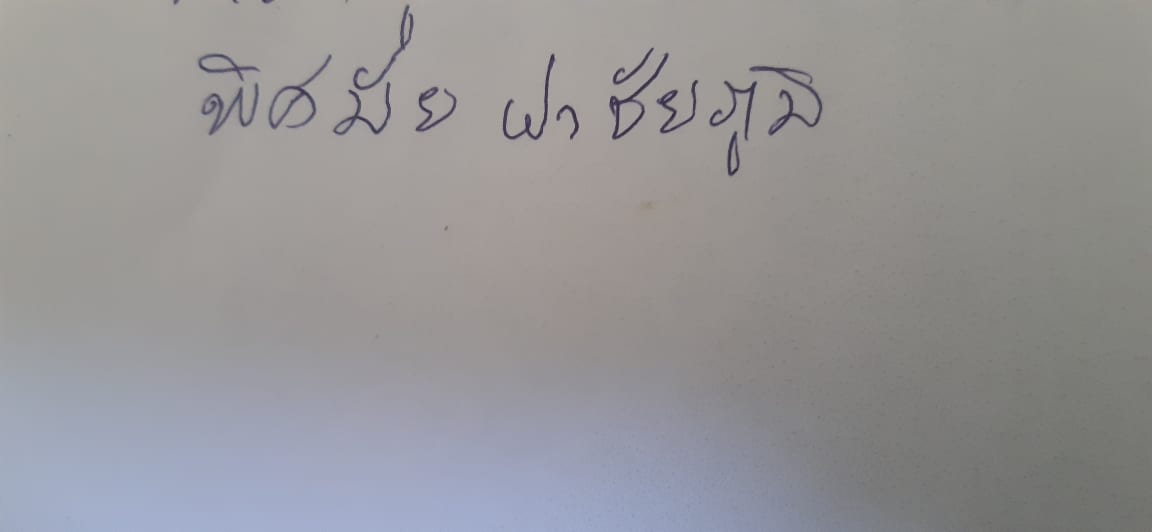 พิศมัย ฝาชัยภูมิ